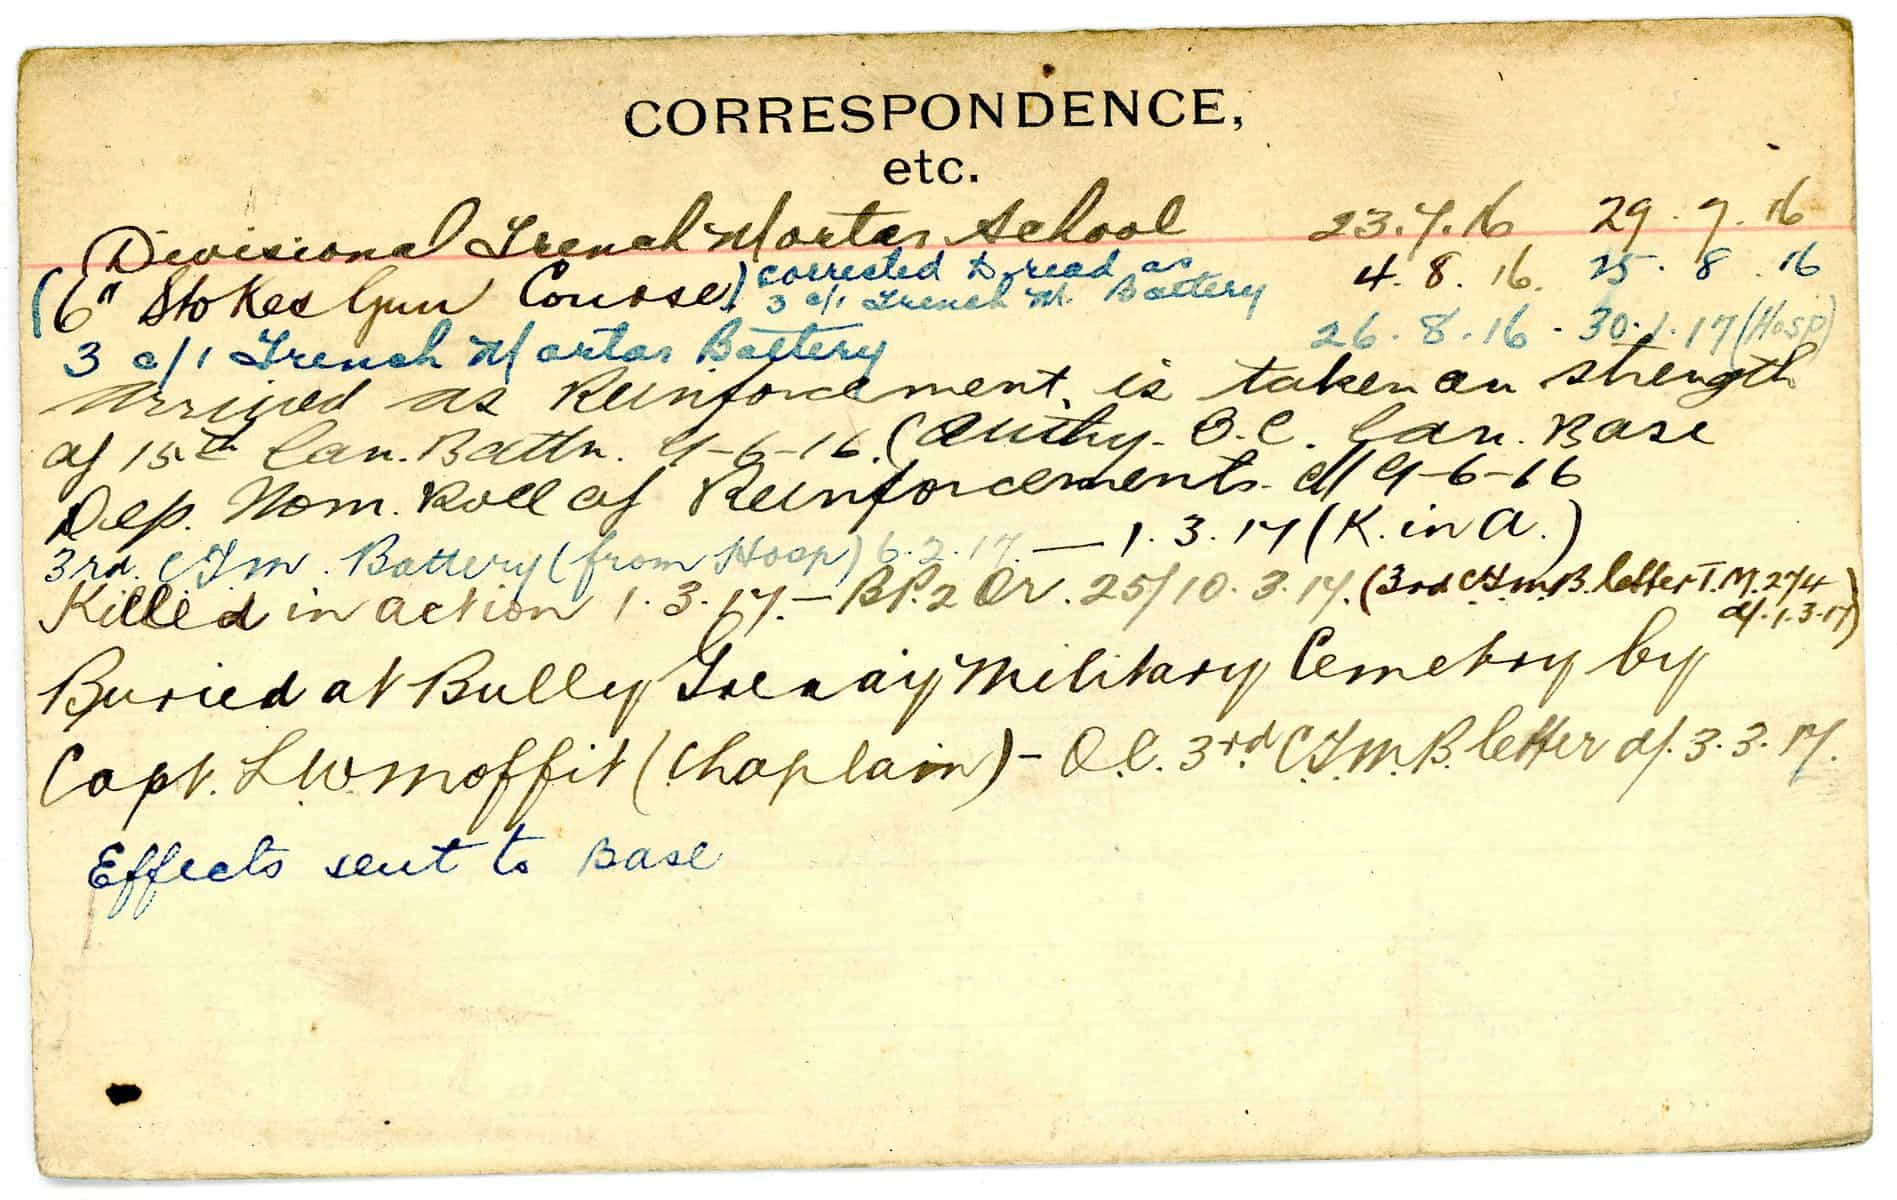 CORRESPONDENCE,
etc.
Divisional Trench Mortar School 23.7.16 29.7.16
(6" Stokes Gun Course) corrected to read as 3 c/1 Trench M. Battery 4.8.16. 25.8.16
3 c/1 Trench Mortar Battery 26.8.16 - 30.1.17 (Hosp)
Arrived as Reinforcement, is taken on strength
of 15th Can. Battn. 9-6-16. (Authy. O.C. Can. Base
Dep. Nom. Roll of Reinforcements d/ 9-6-16
3rd. CTM. Battery (from Hosp) 6.2.17 — 1.3.17 (K. in A.)
Killed in action 1.3.17. — BP.2 Or. 25/10.3.17. (3rd C.T.M.B. letter T.M. 274
d/. 1.3.17)
Buried at Bully Grenay Military Cemetry by
Capt. L.W. Moffit (Chaplain) - O.C. 3rd. C.T.M.B. letter d/. 3.3.17.
Effects sent to Base